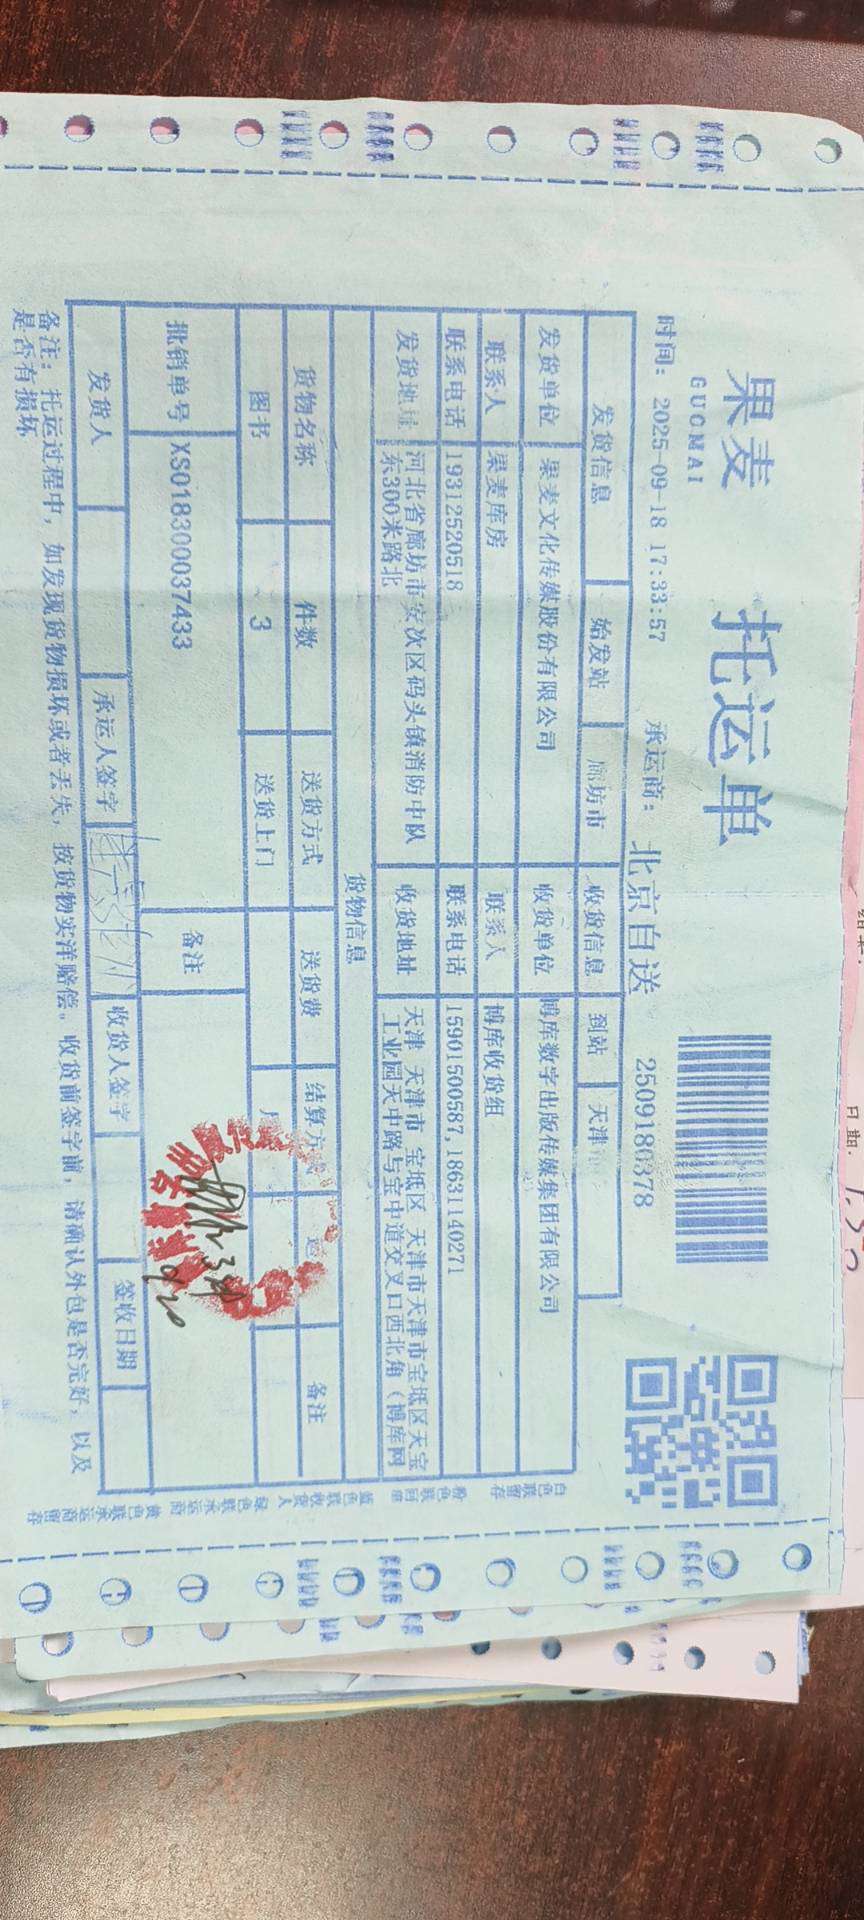 果麦
GUOMAI
托运单
时间: 2025-09-18 17:33:57
承运商: 北京自送
2509180378
发货信息 始发站 廊坊市 收货信息 到站 天津
发货单位 果麦文化传媒股份有限公司 收货单位 博库数字出版传媒集团有限公司
联系人 果麦库房 联系人 博库收货组
联系电话 19312520518 联系电话 15901500587,18631140271
发货地址 河北省廊坊市安次区码头镇消防中队 收货地址 天津 天津市 宝坻区 天津市天津市宝坻区天宝
东300米路北 工业园天中路与宝中道交叉口西北角(博库网
货物信息
货物名称 件数 送货方式 送货费 结算方 运 备注
图书 3 送货上门
批销单号 XS018300037433 备注
发货人 承运人签字 收货人签字 签收日期
备注: 托运过程中, 如发现货物损坏或者丢失, 按货物实洋赔偿。收货前签字前, 请确认外包是否完好, 以及
是否有损坏
白色联留存 粉色联回单 蓝色联收货人 绿色联承运商 黄色联承运商留存
日期.